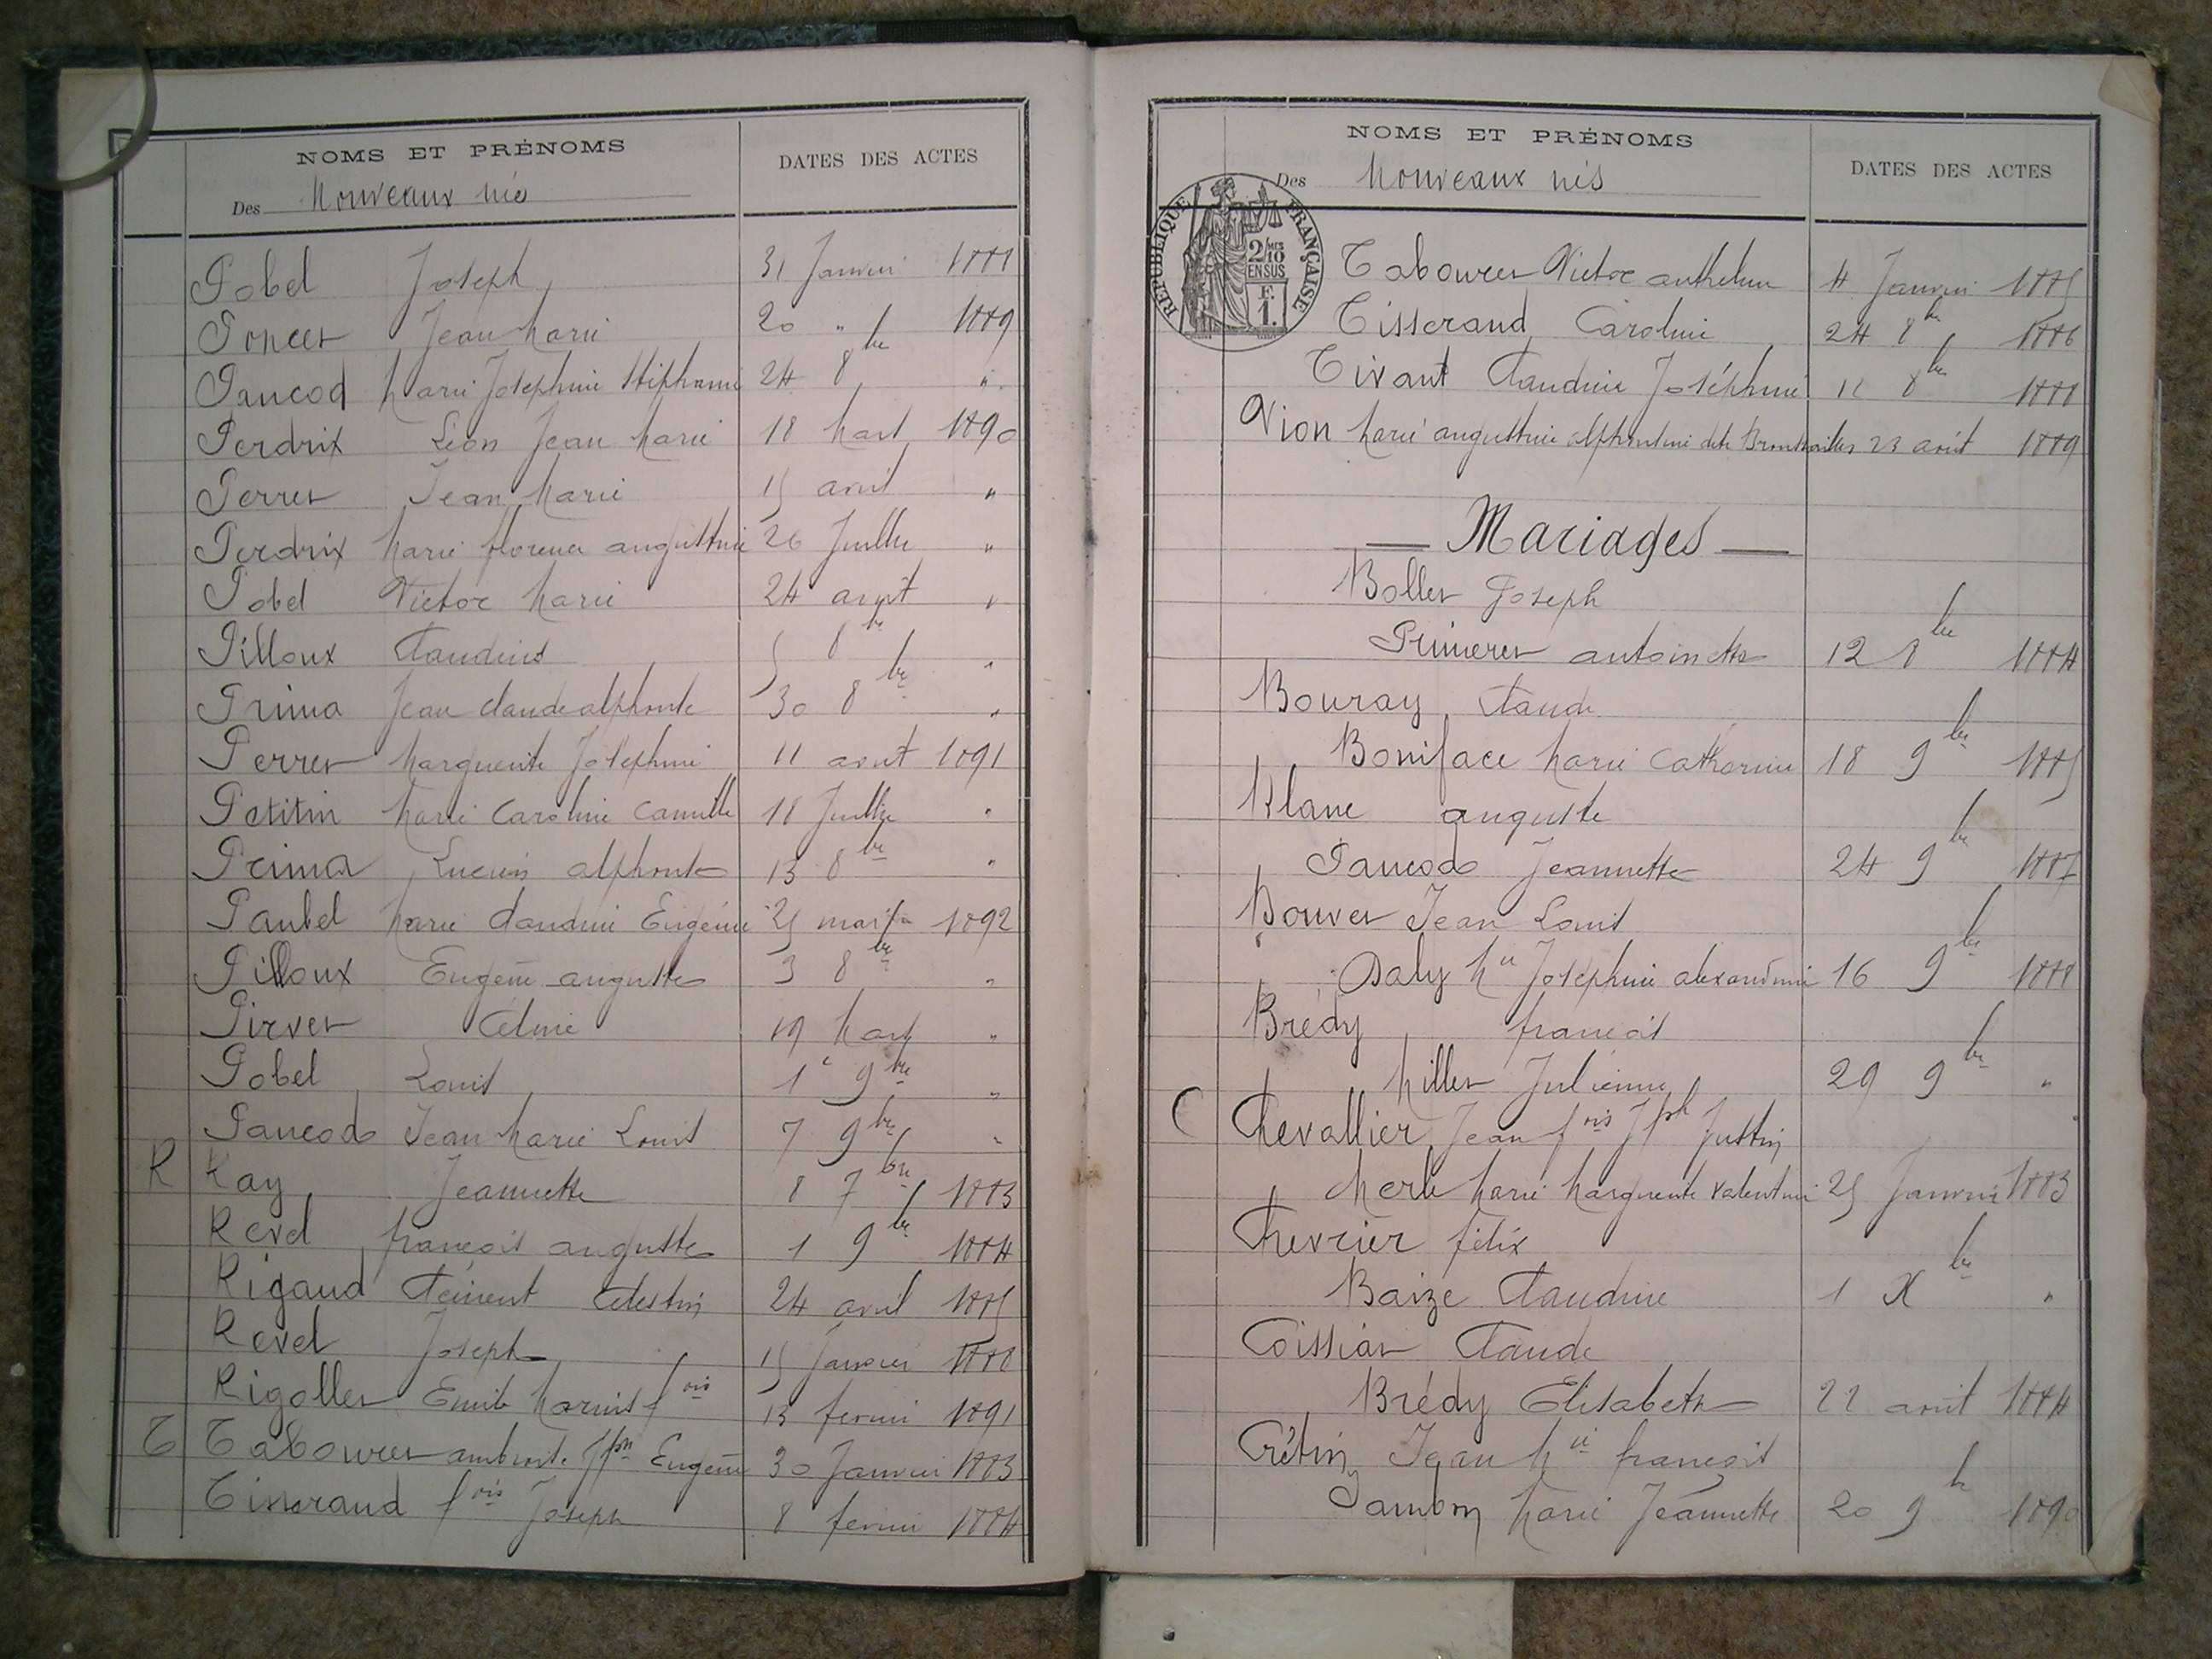 NOMS ET PRÉNOMS
DATES DES ACTES
Des Nouveaux nés
Pobel Joseph 31 Janvier 1888
Poncet Jean Marie 20 " 1889
Pancod Marie Joséphine Stéphanie 24 8bre "
Perdrix Léon Jean Marie 18 Mars 1890
Perret Jean Marie 15 avril "
Perdrix Marie florence augustine 26 Juillet "
Pobel Victor Marie 24 août "
Pilloux Claudius 5 8bre "
Prima Jean Claude alphonse 30 8bre "
Perret Marguerite Joséphine 11 août 1891
Petitin Marie Caroline Camille 18 Juillet "
Prima Lucien alphonse 13 8bre "
Paubel Marie Claudine Eugénie 25 mars 1892
Pilloux Eugène auguste 3 8bre "
Pirvet Céline 19 Mars "
Pobel Louis 1er 9bre "
Pancod Jean Marie Louis 7 9bre "
R Ray Jeannette 8 7bre 1883
Revel françois auguste 1 9bre 1884
Rigaud Clément Célestin 24 avril 1885
Revel Joseph 15 Janvier 1888
Rigollet Emile Marius fois 13 fevrier 1891
T Tabouret ambroise Jph Eugène 30 Janvier 1883
Tisserand fois Joseph 8 fevrier 1884
NOMS ET PRÉNOMS
DATES DES ACTES
Des Nouveaux nés
RÉPUBLIQUE FRANÇAISE
2/10 MES
EN SUS
F.
1.
Tabouret Victor anthelme 4 Janvier 1885
Tisserand Caroline 24 8bre 1886
Tivant Claudine Joséphine 12 8bre 1888
Vion Marie augustine alphonsine dite 23 août 1889
— Mariages —
Bollet Joseph
Primeret antoinette 12 8bre 1884
Bouray Claude
Boniface Marie Catherine 18 9bre 1885
Blanc auguste
Pancod Jeannette 24 9bre 1887
Bouvet Jean Louis
Daly Mie Joséphine alexandrine 16 9bre 1888
Brédy françois
Millet Julienne 29 9bre "
C Chevallier Jean fois Jph Justin
Merle Marie Marguerite Valentine 25 Janvier 1883
Chevrier félix
Baize Claudine 1 Xbre "
Coissiat Claude
Brédy Elisabeth 22 avril 1884
Crétin Jean Mie françois
Jambon Marie Jeannette 20 9bre 1890